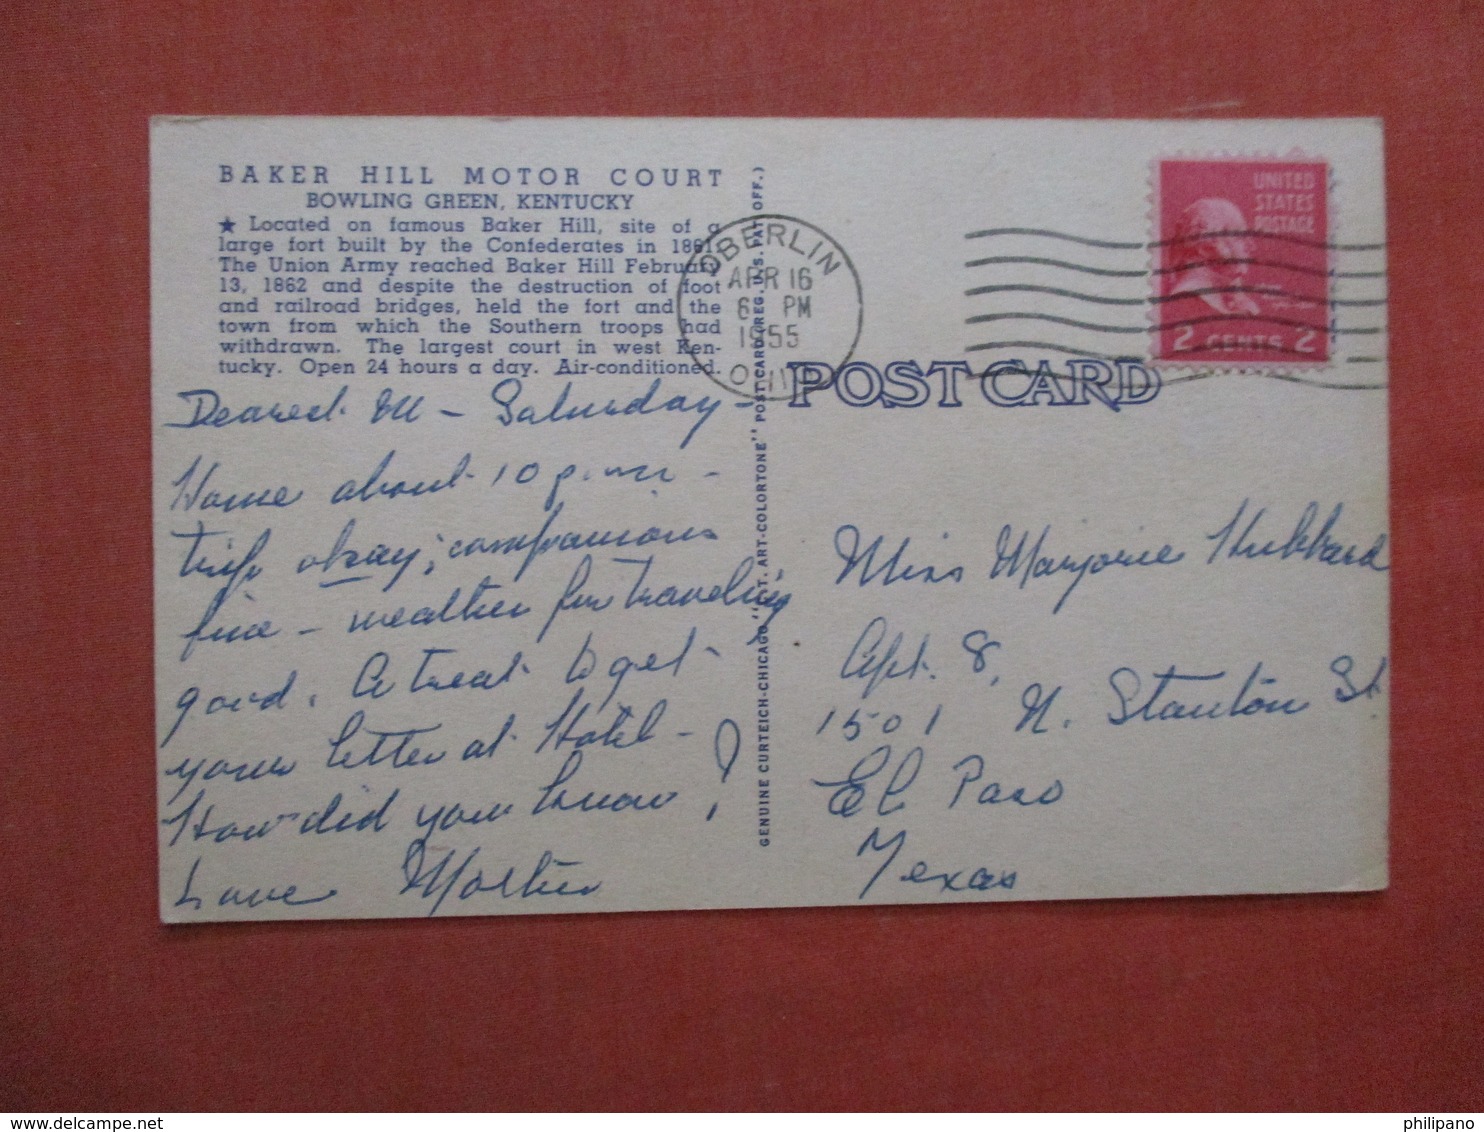 BAKER HILL MOTOR COURT
BOWLING GREEN, KENTUCKY
★ Located on famous Baker Hill, site of a
large fort built by the Confederates in 1861.
The Union Army reached Baker Hill February
13, 1862 and despite the destruction of foot
and railroad bridges, held the fort and the
town from which the Southern troops had
withdrawn. The largest court in west Ken-
tucky. Open 24 hours a day. Air-conditioned.
Dearest M - Saturday -
Home about 10 p.m. -
trip okay; companions
fine - weather for traveling
good. A treat to get
your letter at Hotel -
How did you know?
Love Mother
GENUINE CURTEICH-CHICAGO "C.T. ART-COLORTONE" POST CARD (REG. U.S. PAT. OFF.)
OBERLIN
APR 16
6 PM
1955
OHIO
UNITED
STATES
POSTAGE
2 CENTS 2
POST CARD
Miss Marjorie Hubbard
Apt. 8,
1501 N. Stanton St
El Paso
Texas
philipano